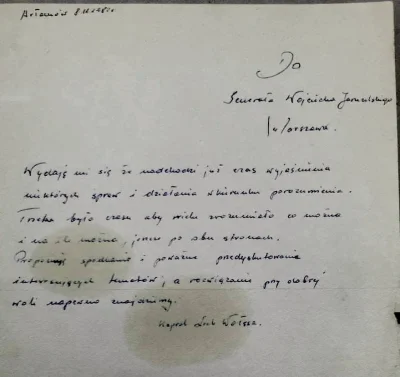 Arłamów 8.11.1982r
Do
Generała Wojciecha Jaruzelskiego
w Warszawa.
Wydaję mi się że nadchodzi już czas wyjaśnienia
niektórych spraw i działania w kierunku porozumienia.
Trzeba było czasu aby wielu zrozumiało co można
i na ile można, jeszcze po obu stronach.
Proponuję spotkanie i poważne przedyskutowanie
interesujących tematów, a rozwiązanie przy dobrej
woli napewno znajdziemy.
Kapral Lech Wałęsa.